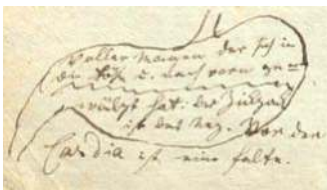 Voller Magen der sich in
die Höhe u. nach vorn ge-
wälzt hat: der Zickzack
ist das Nez. Vor der
Cardia ist eine Falte.